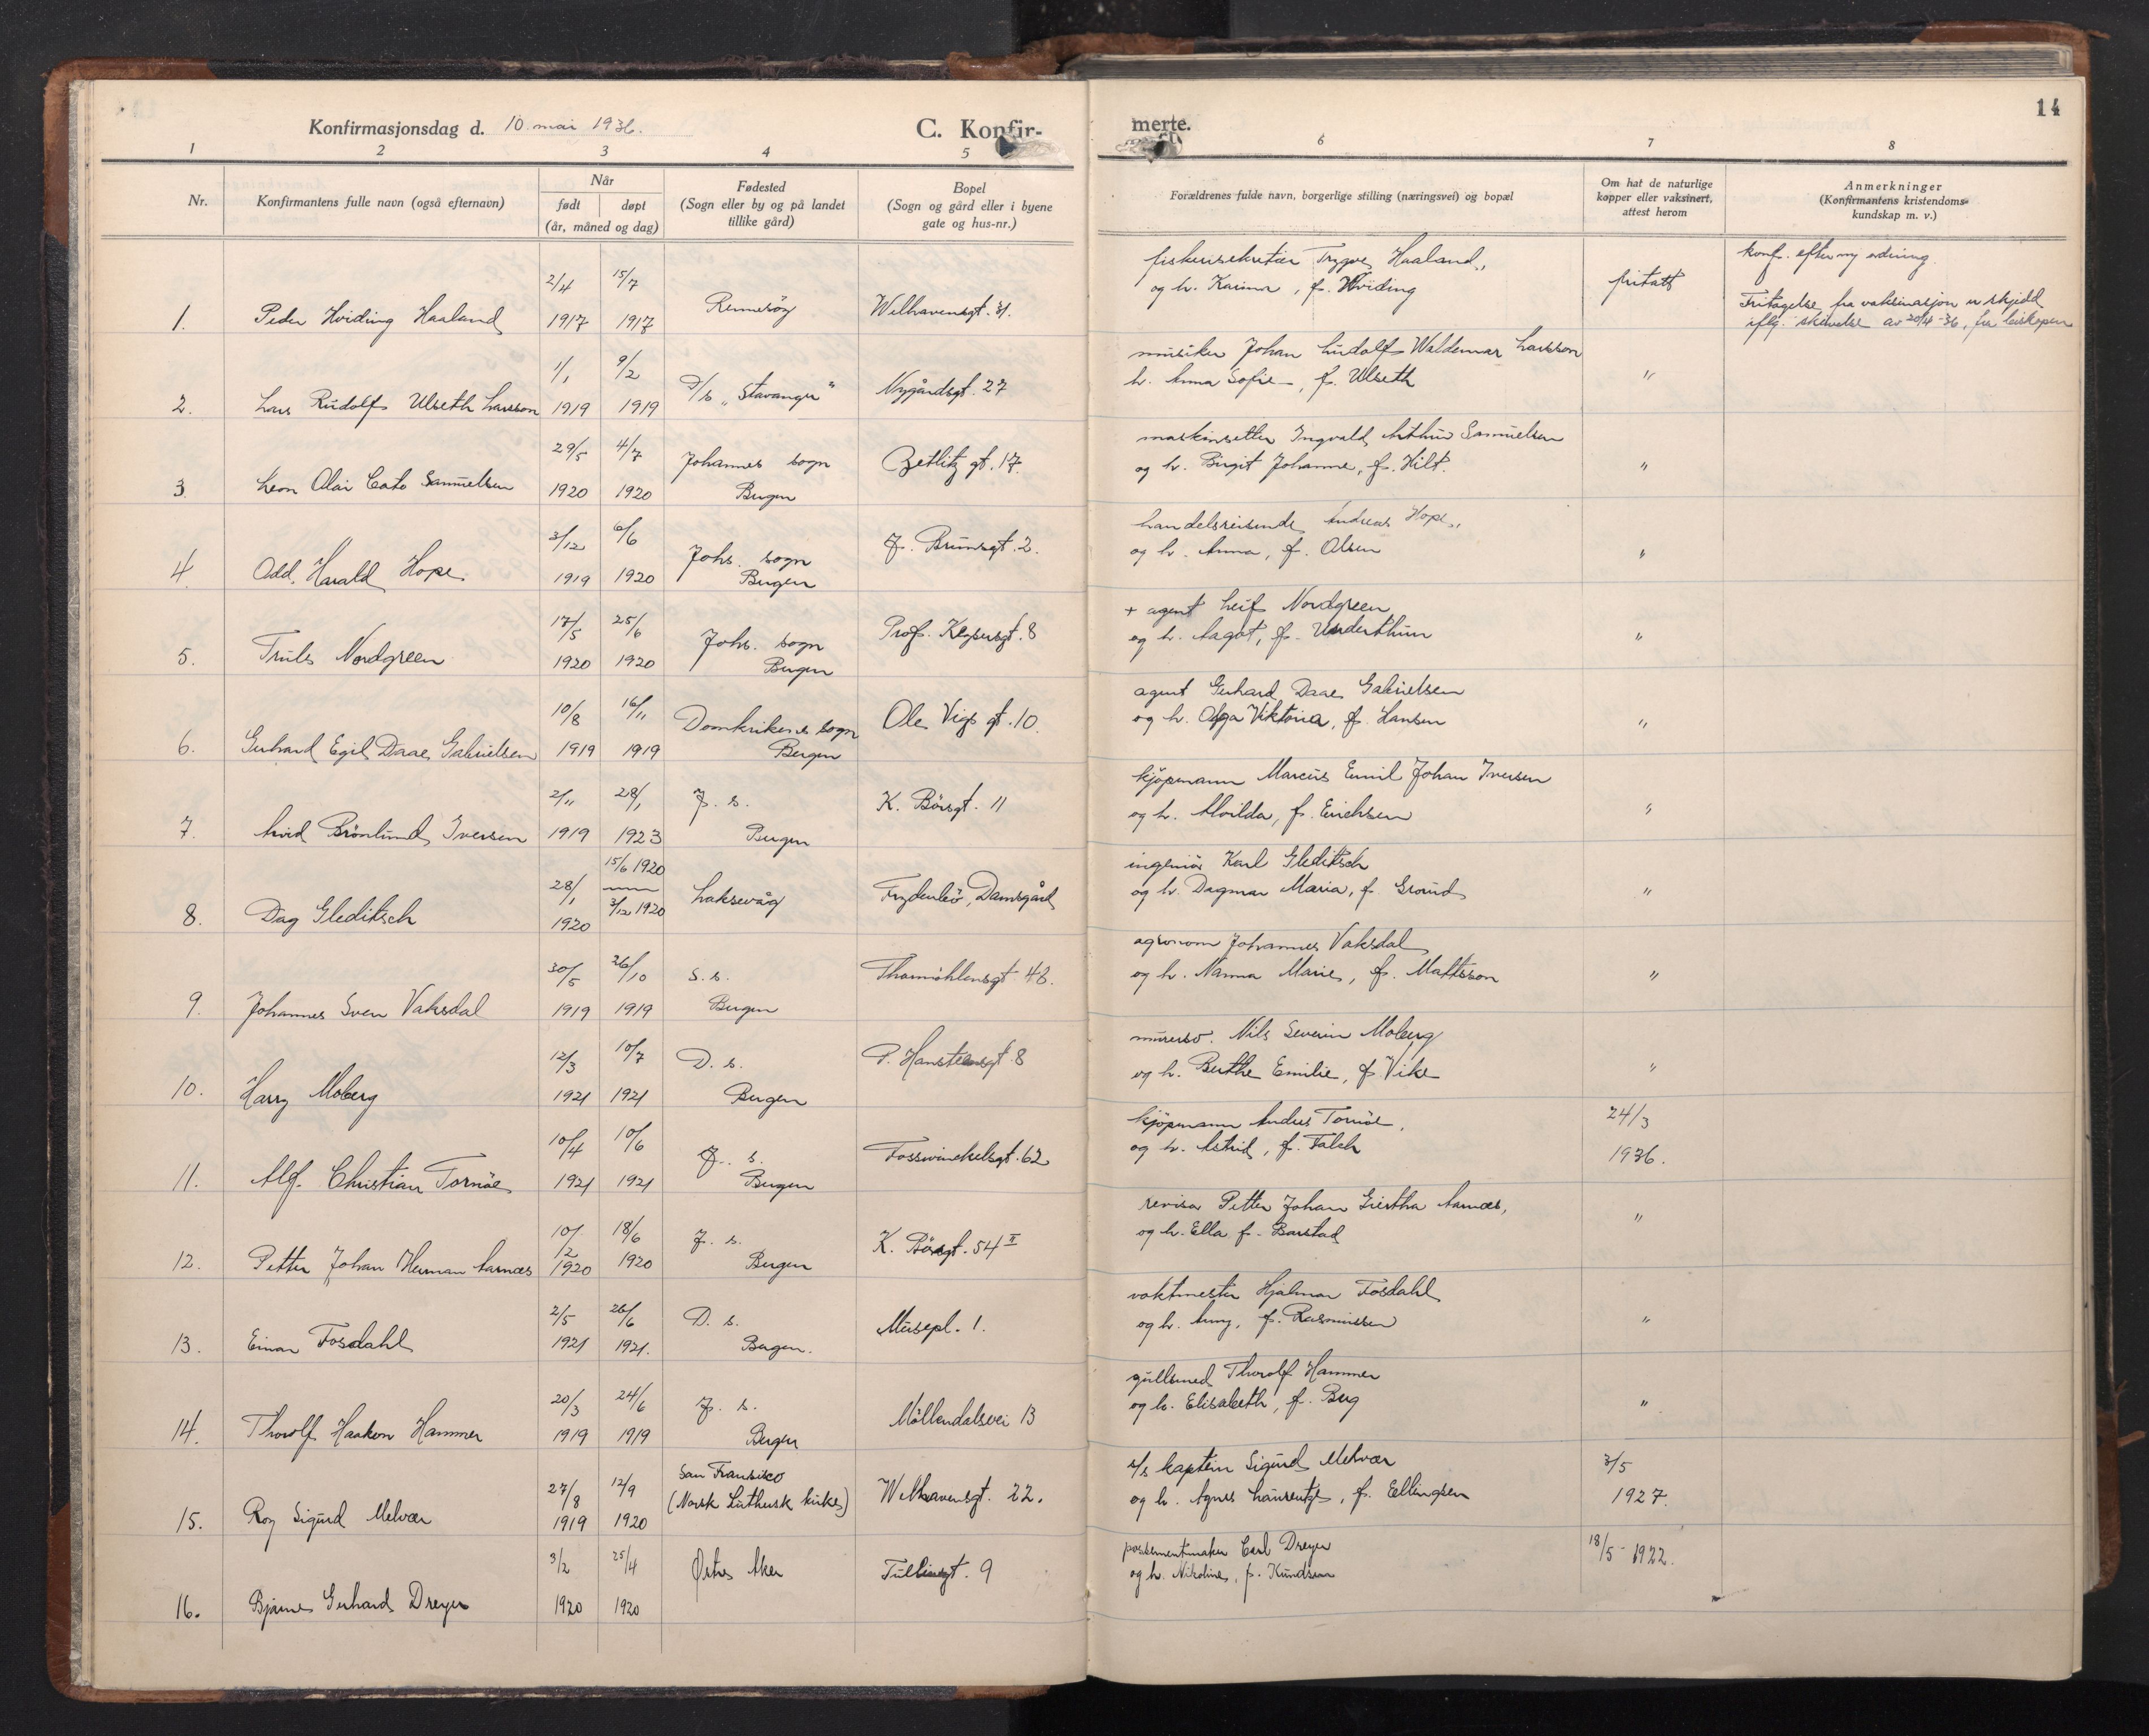 Konfirmasjonsdag d. 10. mai 1936.
C. Konfir-
merte.
14
1 2 3 4 5 6 7 8
Nr.
Konfirmantens fulle navn (også efternavn)
Når
født døpt
(år, måned og dag)
Fødested
(Sogn eller by og på landet
tillike gård)
Bopel
(Sogn og gård eller i byene
gate og hus-nr.)
Forældrenes fulde navn, borgerlige stilling (næringsvei) og bopæl
Om hat de naturlige
kopper eller vaksinert,
attest herom
Anmerkninger
(Konfirmantens kristendoms-
kundskap m. v.)
2/4 15/7
1. Peder Hviding Haaland 1917 1917 Rennesöy Welhavensgt. 31.
fiskerisekretær Trygve Haaland,
og h. Karina, f. Hviding
fritatt
konf. efter ny ordning.
Fritagelse fra vaksinasjon er skjedd
iflg. skrivelse av 20/4-36, fra biskopen
1/1 9/2
2. Lars Rudolf Ulseth Larsson 1919 1919 D/s „Stavanger" Nygårdsgt. 27
musiker Johan Ludolf Waldemar Larsson
h. Anna Sofie, f. Ulseth
"
29/5 4/7
3. Leon Alai Cato Samuelsen 1920 1920 Johannes sogn
Bergen
Zetlitz gt. 17.
maskinsetter Ingvald Arthur Samuelsen
og h. Birgit Johanne, f. Hilt.
"
3/12 6/6
4. Odd Harald Hope 1919 1920 Johs. sogn
Bergen
J. Brunsgt. 2.
handelsreisende Andreas Hope,
og h. Anna, f. Olsen
"
17/5 25/6
5. Truls Nordgreen 1920 1920 Johs. sogn
Bergen
Prof. Keysersgt. 8
+ agent Leif Nordgreen
og h. Aagot, f. Underthun
"
10/8 16/11
6. Gerhard Egil Daae Gabrielsen 1919 1919 Domkirkenes sogn
Bergen
Ole Vigs gt. 10.
agent Gerhard Daae Gabrielsen
og h. Olga Viktoria, f. Hansen
"
2/11 28/1
7. Arvid Brönlund Iversen 1919 1923 J. s.
Bergen
K. Börsgt. 11
kjöpmann Marcus Emil Johan Iversen
og h. Alvilda, f. Erichsen
"
28/1 15/6 1920
3/12 1920
8. Dag Gleditsch 1920 Laksevåg Frydenbö, Damsgård
ingeniör Karl Gleditsch
og h. Dagmar Maria, f. Grorud
"
30/5 26/10
9. Johannes Sven Vaksdal 1919 1919 S. s.
Bergen
Thormöhlensgt. 48.
agronom Johannes Vaksdal
og h. Nanna Marie, f. Mattsson
"
12/3 10/7
10. Harry Moberg 1921 1921 D. s.
Bergen
P. Hansteensgt. 8
murersv. Nils Severin Moberg
og h. Berthe Emilie, f. Vike
"
10/4 10/6
11. Alf Christian Tornöe 1921 1921 J. s.
Bergen
Fosswinckelsgt. 62
kjöpmann Andres Tornöe,
og h. Astrid, f. Falch
24/3
1936.
10/2 18/6
12. Petter Johan Herman Aarnæs 1920 1920 J. s.
Bergen
K. Börsgt. 54 II
revisor Petter Johan Aarnæs,
og h. Ella f. Barstad
"
2/5 26/6
13. Einar Fosdahl 1921 1921. D. s.
Bergen.
Musepl. 1.
vaktmester Hjalmar Fosdahl
og h. Anny, f. Rasmussen
"
20/3 24/6
14. Thorolf Haakon Hammer 1919 1919 J. s.
Bergen
Möllendalsvei 13
gullsmed Thorolf Hammer
og h. Elisabeth, f. Berg
"
27/8 12/9
15. Roy Sigurd Melvær 1919 1920 San Fransisco
(Norsk Luthersk kirke)
Welhavensgt. 22.
s/s kaptein Sigurd Melvær
og h. Agnes Laurentze, f. Ellingsen
3/5
1927.
3/2 25/4
16. Bjarne Gerhard Dreyer 1920 1920 Østre Aker Tullinsgt. 9
possementmaker Carl Dreyer
og h. Nikoline, f. Knudsen
18/5-1922.